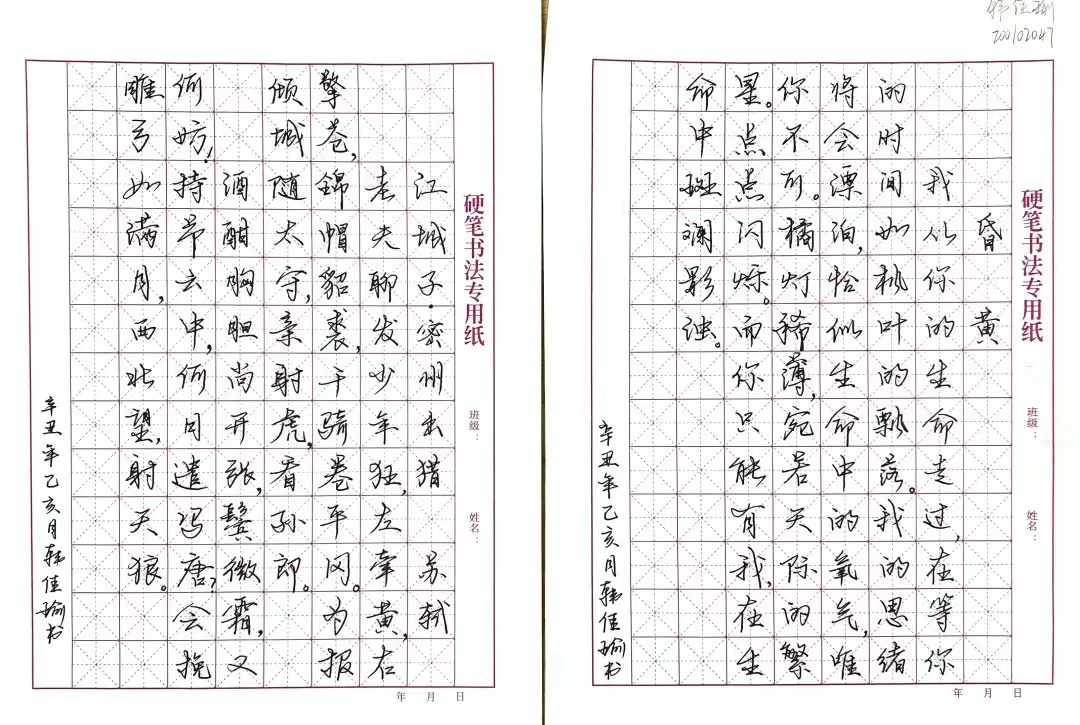 江城子·密州出猎 苏轼
老夫聊发少年狂,左牵黄,右
擎苍,錦帽貂裘,千骑卷平冈。为报
倾城随太守,亲射虎,看孙郎。
酒酣胸胆尚开张,鬓微霜,又
何妨!持节云中,何日遣冯唐?会挽
雕弓如满月,西北望,射天狼。
辛丑年乙亥月韩佳瑜书
硬笔书法专用纸
班级:
姓名:
年 月 日
韩佳瑜
200102047
昏黄
我从你的生命走过,在等你
的时间如枫叶的飘落。我的思绪
将会漂泊,恰似生命中的氧气,唯
你不可。橘灯稀薄,宛若天际的繁
星。点点闪烁。而你只能有我,在生
命中斑斓影浊。
辛丑年乙亥月韩佳瑜书
硬笔书法专用纸
班级:
姓名:
年 月 日